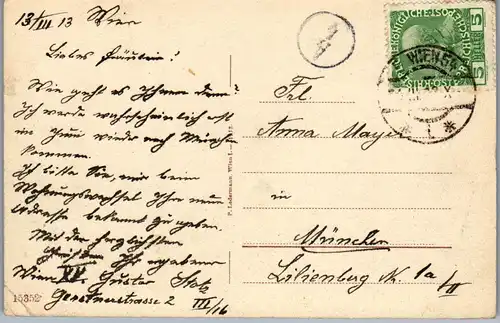 13/III 13 Wien
Liebes Fräulein!
Wie geht es Ihnen denn?
Ich werde wahrscheinlich erst
im Juni wieder nach München
kommen.
Ich bitte Sie, mir beim
Wohnungswechsel Ihre neue
Adresse bekannt zu geben.
Mit den herzlichsten
Grüßen Ihr ergebener
Gustav Stolz
Wien XV.
Gerstnerstrasse 2 III/16
15352
P. Ledermann, Wien I.
Frl.
Anna Mayer
in
München
Lilienberg Nr. 1a/II
5
5
WIEN
1